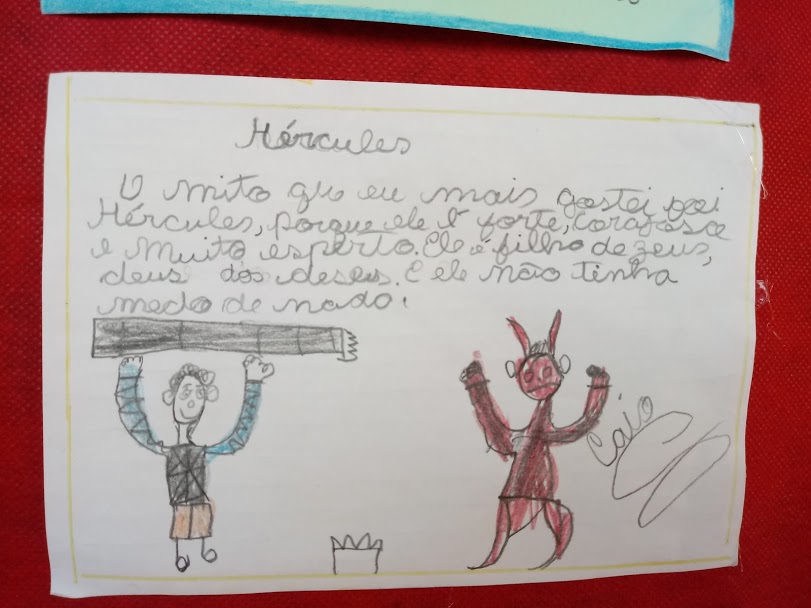 Hércules
O mito que eu mais gostei foi
Hércules, porque ele é forte, corajoso
e muito esperto. Ele é filho de zeus,
deus dos deuses. E ele não tinha
medo de nada.
Caio